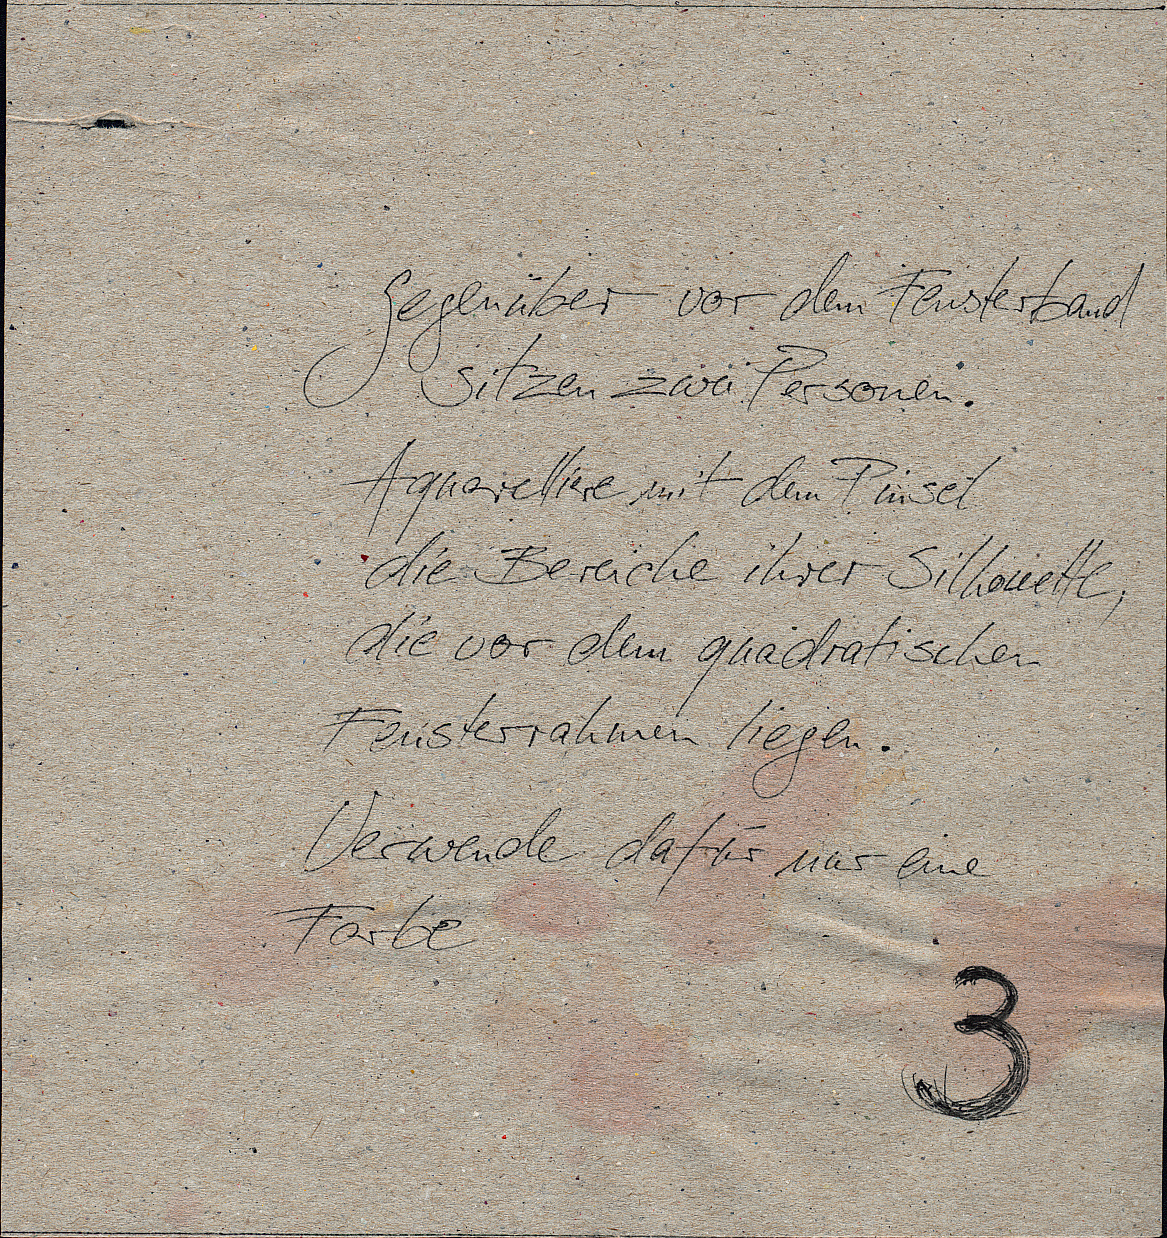 Gegenüber vor dem Fensterband
sitzen zwei Personen.
Aquarelliere mit dem Pinsel
die Bereiche ihrer Silhouette,
die vor dem quadratischen
Fensterrahmen liegen.
Verwende dafür nur eine
Farbe
3